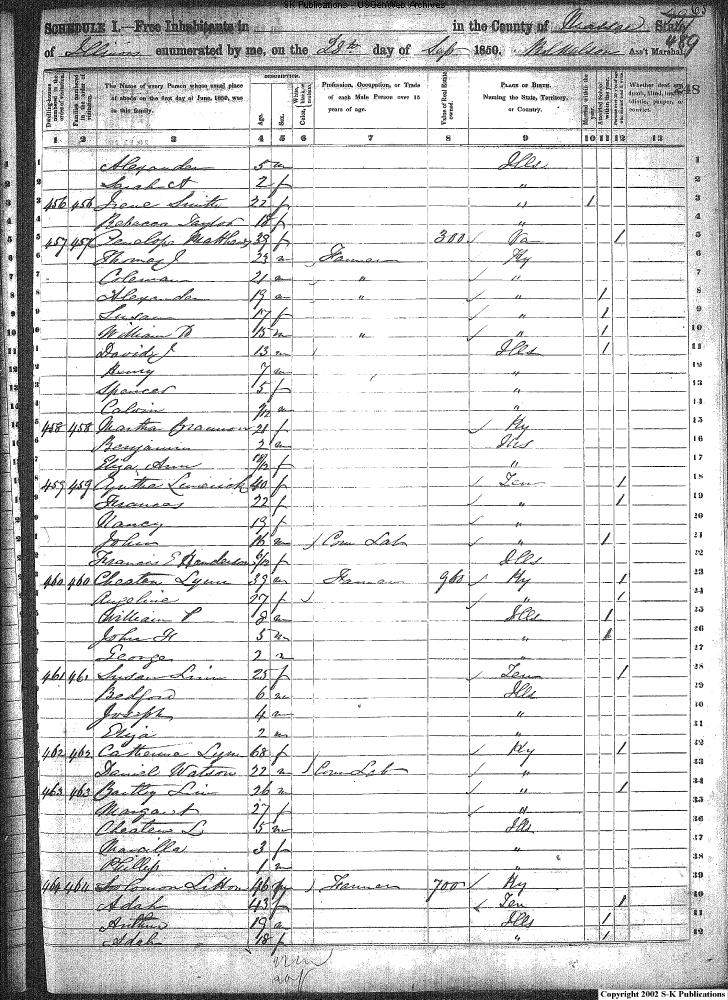 SK Publications - USGenWeb Archives
SCHEDULE I.—Free Inhabitants in in the County of State
of Illinois enumerated by me, on the 28th day of Sep 1850. Ass't Marshal.
489
248
Dwelling-houses numbered in the order of visitation.
Families numbered in the order of visitation.
The Name of every Person whose usual place of abode on the first day of June, 1850, was in this family.
DESCRIPTION.
Age.
Sex.
Color, White, black, or mulatto.
Profession, Occupation, or Trade of each Male Person over 15 years of age.
Value of Real Estate owned.
PLACE OF BIRTH. Naming the State, Territory, or Country.
Married within the year.
Attended School within the year.
Whether deaf and dumb, blind, insane, idiotic, pauper, or convict.
1 2 3 4 5 6 7 8 9 10 11 12 13
1 Alexander 5 m Ills
2 2 f "
3 456 456 Irene Smith 22 f " /
4 Rebacca Taylor 18 f "
5 457 457 Penelope Matthews 39 f 300 Va /
6 Thomas J 23 m Farmer Ky
7 Coleman 21 m " "
8 Alexander 19 m " " /
9 Susan 17 f " /
10 William 15 m " " /
11 David J 13 m Ills /
12 Henry 7 m "
13 Spencer 5 f "
14 Calvin m "
15 458 458 Martha Brannon 21 f Ky
16 Benjamin 2 m Ills
17 Eliza Ann f "
18 459 459 Cyntha Limerick 40 f Ten /
19 Frances 22 f " /
20 Nancy 19 f "
21 John 16 m Com Lab " /
22 Francis E Henderson f Ills
23 460 460 Cheaten Lynn 39 m Farmer 960 Ky /
24 Angeline 27 f " /
25 William P 8 m Ills /
26 John H 5 m " /
27 George 2 m "
28 461 461 Susan Linn 25 f Ten /
29 Bedford 6 m Ills
30 Joseph 4 m "
31 Eliza 2 m "
32 462 462 Catherine Lynn 68 f Ky /
33 Daniel Watson 22 m Com Lab "
34 463 463 Bartley Linn 26 m " /
35 Margaret 27 f "
36 Cheaten L 5 m Ills
37 Marcilla 3 f "
38 Phillip 1 m "
39 464 464 Solomon Litton 46 Farmer 700 Ky
40 Adah 43 f Ten /
41 Arthur 19 m Ills /
42 Adah 18 f " /
Copyright 2002 S-K Publications